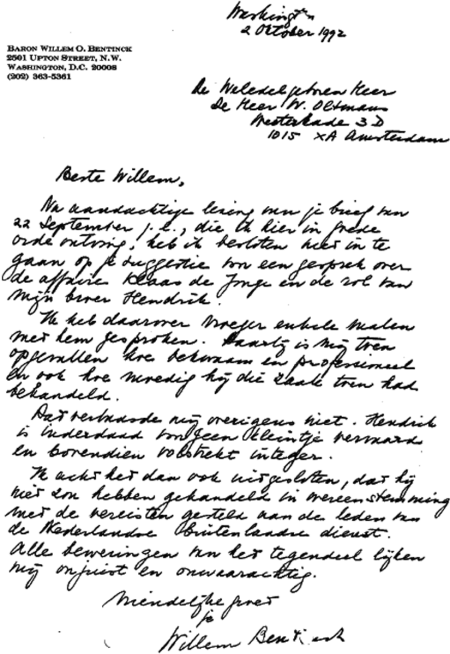 Washington
2 October 1992
BARON WILLEM O. BENTINCK
2501 UPTON STREET, N.W.
WASHINGTON, D.C. 20008
(202) 363-5361
De Weledelgeboren Heer
De Heer W. Oltmans
Westerkade 3 D
1015 XA Amsterdam
Beste Willem,
Na aandachtige lezing van je brief van
22 September j.l., die ik hier in goede
orde ontving, heb ik besloten niet in te
gaan op je suggestie van een gesprek over
de affaire Klaas de Jonge en de rol van
mijn broer Hendrik.
Ik heb daarover vroeger enkele malen
met hem gesproken. Daarbij is mij toen
opgevallen hoe bekwaam en professioneel
en ook hoe moedig hij die zaak toen had
behandeld.
Dat verbaasde mij overigens niet. Hendrik
is inderdaad voor geen kleintje vervaard
en bovendien volstrekt integer.
Ik acht het dan ook uitgesloten, dat hij
niet zou hebben gehandeld in overeenstemming
met de vereisten gesteld aan de leden van
de Nederlandse Buitenlandse dienst.
Alle beweringen van het tegendeel lijken
mij onjuist en onwaarachtig.
Vriendelijke groet
je
Willem Bentinck